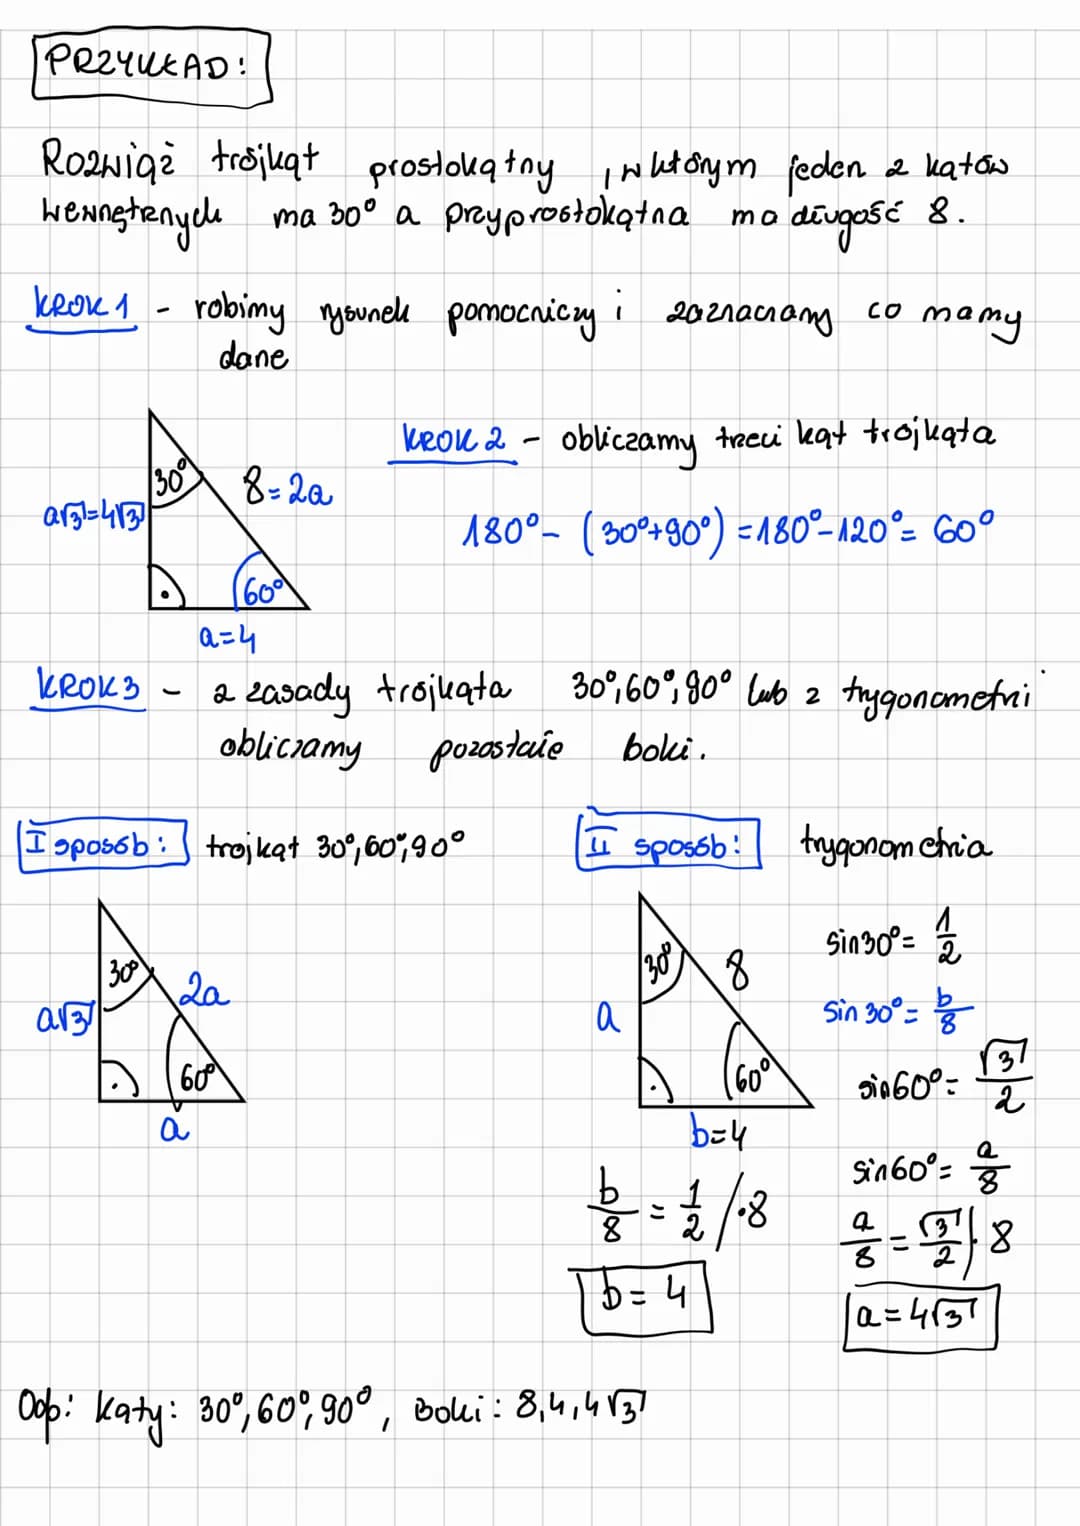 PRZYKŁAD:
Rozwiąż trójkąt prostokątny, w którym jeden z kątów
wewnętrznych ma 30° a przyprostokątna ma długość 8.
KROK 1 - robimy rysunek pomocniczy i zaznaczamy co mamy
dane
30°
8=2a
a√3=4√3
60°
a=4
KROK 2 - obliczamy trzeci kąt trójkąta
180°-(30°+90°)=180°-120°=60°
KROK 3 - z zasady trójkąta 30°,60°,90° lub z trygonometrii
obliczamy pozostałe boki.
I sposób: trójkąt 30°,60°,90°
30°
2a
a√3
60°
a
II sposób: trygonometria
30°
8
a
60°
b=4
sin30°=1/2
sin30°=b/8
sin60°=√3/2
sin60°=a/8
b/8=1/2 /·8
b=4
a/8=√3/2 |·8
a=4√3
Odp: kąty: 30°,60°,90°, Boki: 8,4,4√3